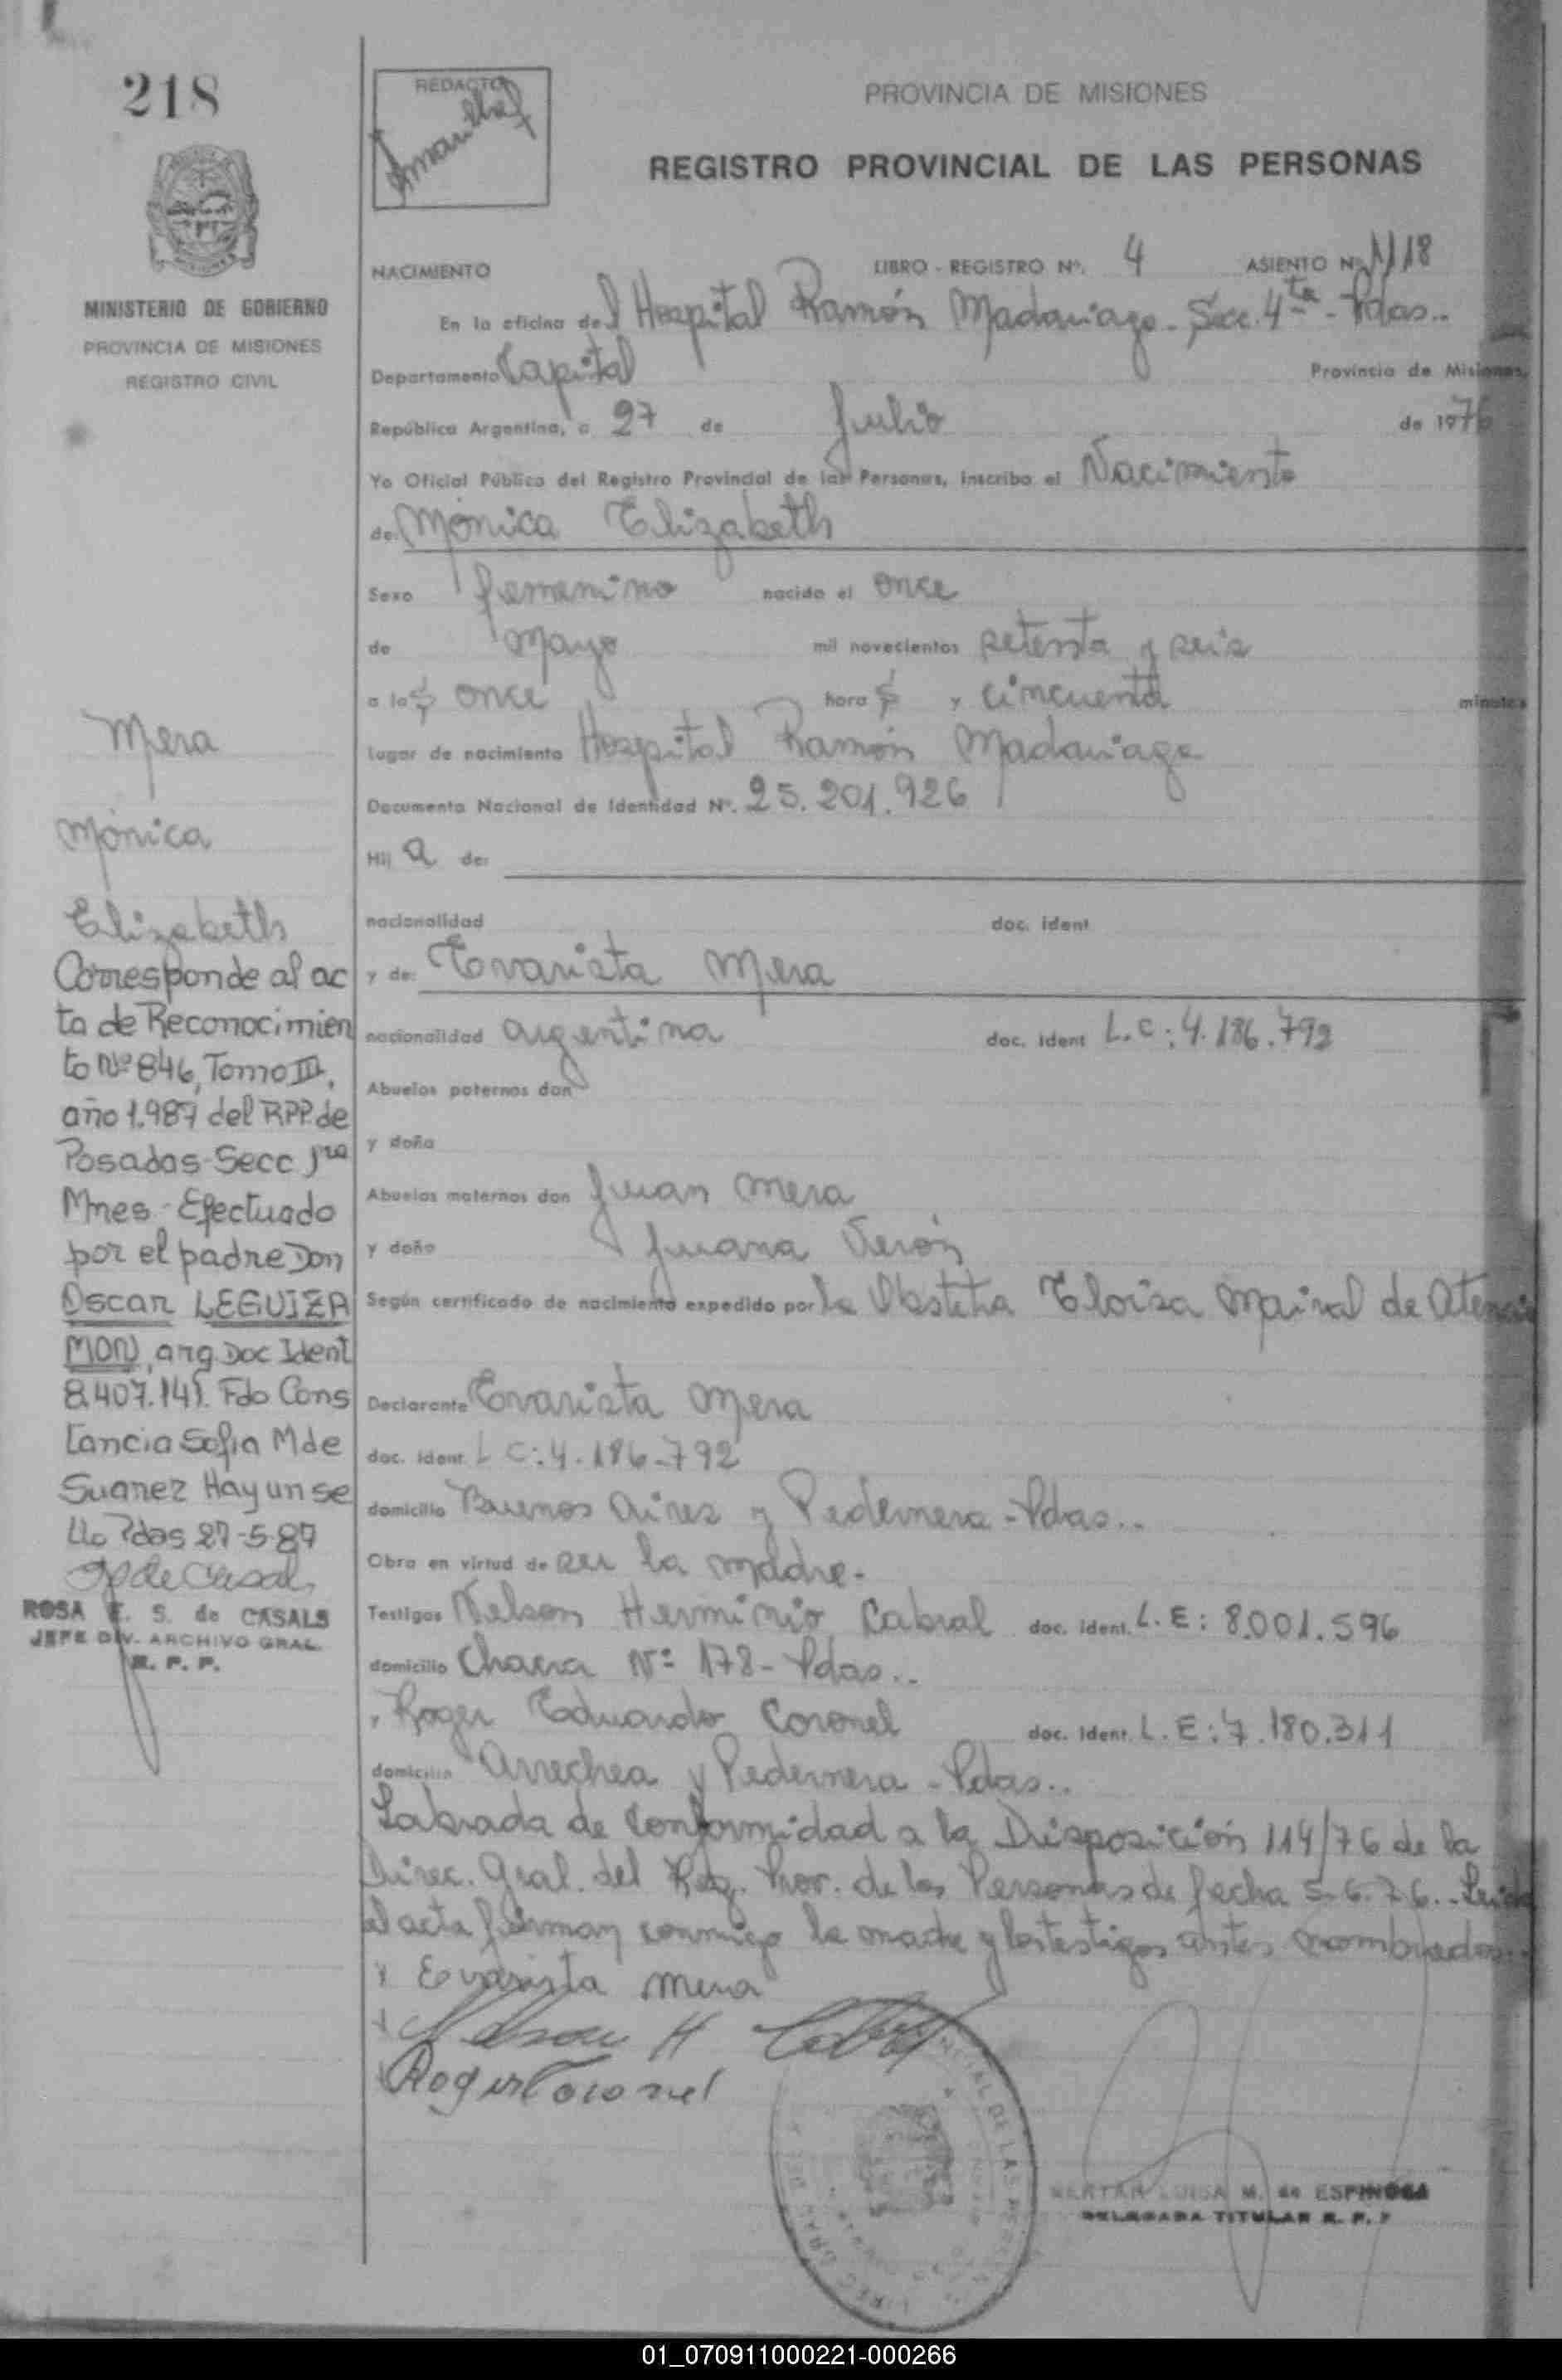 218
REDACTO
PROVINCIA DE MISIONES
REGISTRO PROVINCIAL DE LAS PERSONAS
MINISTERIO DE GOBIERNO
PROVINCIA DE MISIONES
REGISTRO CIVIL
NACIMIENTO LIBRO - REGISTRO Nº. 4 ASIENTO Nº 1118
En la oficina del Hospital Ramón Madariaga - Secc. 4ta - Pdas..
Departamento Capital Provincia de Misiones,
República Argentina, a 27 de Julio de 1976
Yo Oficial Público del Registro Provincial de las Personas, inscribo el Nacimiento
de: Mónica Elizabeth
Sexo femenino nacido el once
de Mayo mil novecientos setenta y seis
a las once horas y cincuenta minutos
lugar de nacimiento Hospital Ramón Madariaga
Documento Nacional de Identidad Nº. 25.201.926
Hij a de:
nacionalidad doc. ident
y de: Evarista Mera
nacionalidad argentina doc. ident L.C: 4.186.792
Abuelos paternos don
y doña
Abuelos maternos don Juan Mera
y doña Juana Verón
Según certificado de nacimiento expedido por la Obstetra Eloisa Mairal de
Declarante Evarista Mera
doc. ident. L C: 4.186.792
domicilio Buenos Aires y Pedernera - Pdas..
Obra en virtud de ser la madre.-
Testigos Nelson Herminio Cabral doc. ident. L.E: 8.001.596
domicilio Chacra Nº 178 - Pdas..
, Roger Eduardo Coronel doc. ident. L.E: 7.180.311
domicilio Arrechea y Pedernera - Pdas..
Labrada de conformidad a la Disposición 114/76 de la
Direc. Gral. del Reg. Prov. de las Personas de fecha 5-6-76..- Leida
el acta firman conmigo la madre y los testigos antes nombrados..
x Evarista Mera
Nelson H Cabral
Roger Coronel
LUISA M. de ESPINOSA
DELEGADA TITULAR R. P. P
Mera
Mónica
Elizabeth
Corresponde al ac
ta de Reconocimien
to Nº 846, Tomo III,
año 1.987 del RPP. de
Posadas - Secc 1ra
Mnes - Efectuado
por el padre Don
Oscar LEGUIZA
MON, arg. Doc Ident
8.407.141. Fdo Cons
tancia Sofia M de
Suarez Hay un se
llo Pdas 27-5-87
ROSA E. S. de CASALS
JEFE DIV. ARCHIVO GRAL.
R. P. P.
01_070911000221-000266